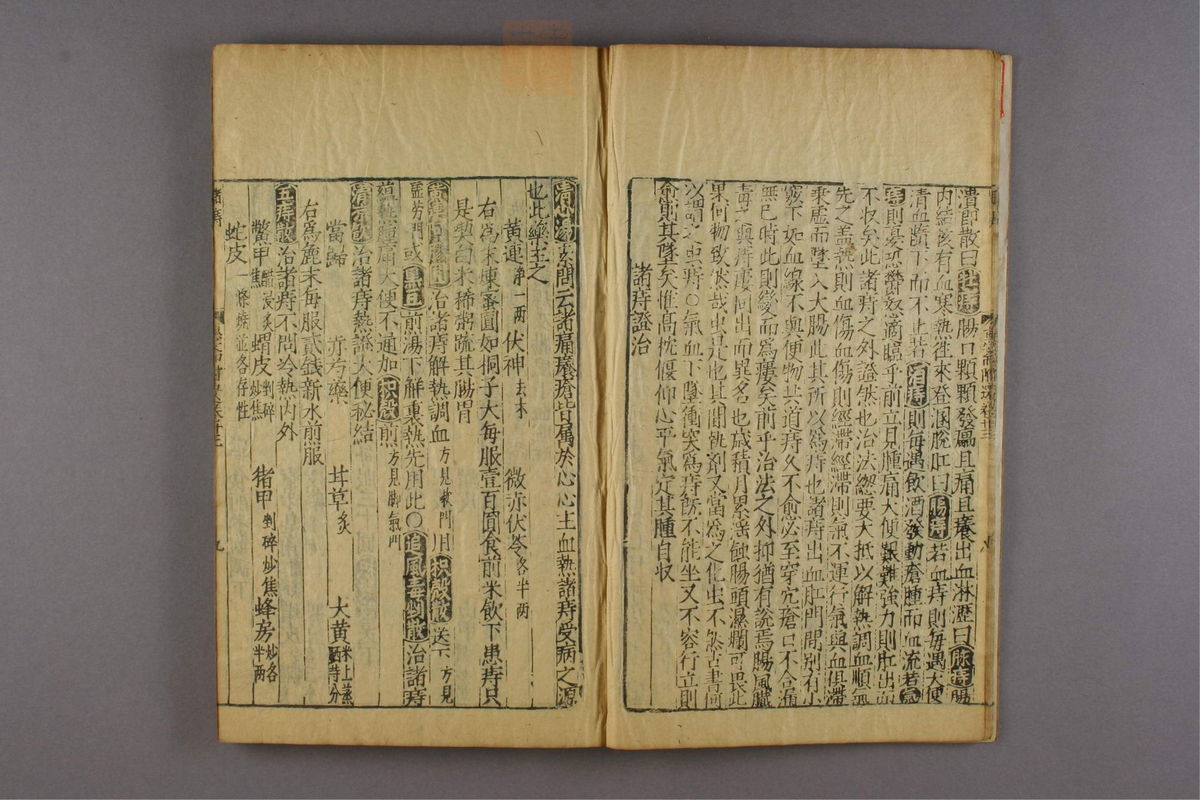 潰即散曰牡痔腸口顆顆發癗且痛且癢出血淋瀝曰脉痔腸
內結核有血寒熱往來登溷脫肛曰腸痔若血痔則每遇大便
清血隨下而不止若酒痔則每遇飲酒發動瘡腫而血流若氣
痔則憂恐鬱怒適臨乎前立見腫痛大便艱難強力則肛出而
不收矣此諸痔之外證然也治法總要大抵以解熱調血順氣
先之蓋熱則血傷血傷則經滯經滯則氣不運行氣與血俱滯
乘虛而墜入大腸此其所以為痔也諸痔出血肛門間別有小
竅下如血線不與便物共道痔久不愈必至穿穴瘡口不合漏
無已時此則變而為瘻矣前乎治法之外抑猶有說焉腸風臟
毒之與痔瘻同出而異名也歲積月累淫蝕腸頭濕爛可畏此
果何物致然哉虫是也其間執劑又當為之化虫不然古書何
以謂之虫痔○氣血下墜衝突為痔既不能坐又不容行立則
愈則其墜矣惟高枕偃仰心平氣定其腫自收
諸痔證治
清心湯素問云諸痛癢瘡皆屬於心心主血熱諸痔受病之源
也此藥主之
黃連淨一兩 伏神去木 微赤伏苓各半兩
右為末煉蜜圓如桐子大每服壹百圓食前米飲下患痔只
是喫白米稀粥疏其腸胃
治諸痔解熱調血方見 門用枳殼散送下方見
芳門或黑豆前湯下解裏熱先用此○追風毒剉散治諸痔
痛大便不通加枳殼煎方見脚氣門
治諸痔熱證大便秘結
當歸 赤芍藥 甘草炙 大黃米上蒸晒等分
右為麄末每服貳錢新水煎服
五痔散治諸痔不問冷熱內外
鱉甲醋浸炙焦 蝟皮剉碎炒焦 猪甲剉碎炒焦 蜂房炒各半兩
蛇皮一條燒並各存性
諸痔 九